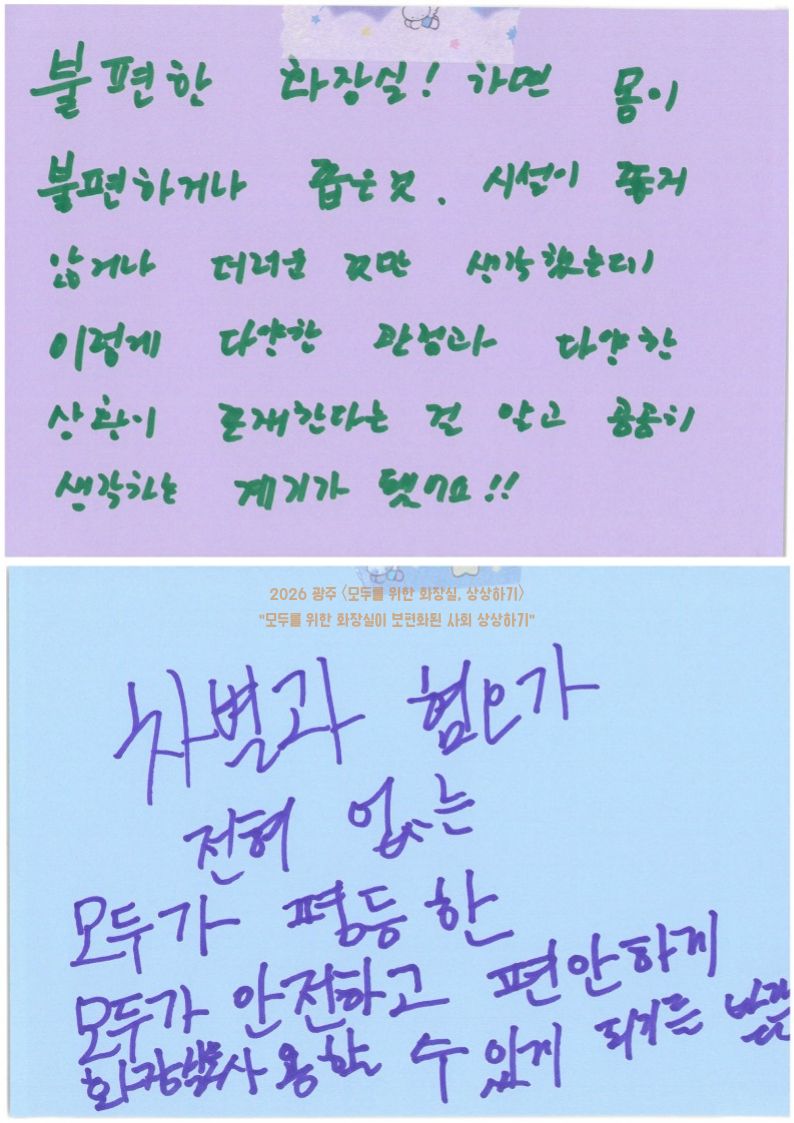 불편한 화장실! 하면 몸이
불편하거나 좁은것. 시설이 좋지
않거나 더러운 것만 생각했는데
이렇게 다양한 관점과 다양한
상황이 존재한다는 걸 알고 곰곰히
생각하는 계기가 됐어요!!
2026 광주 <모두를 위한 화장실, 상상하기>
"모두를 위한 화장실이 보편화된 사회 상상하기"
차별과 혐오가
전혀 없는
모두가 평등한
모두가 안전하고 편안하게
화장실 사용할 수 있게 되기를